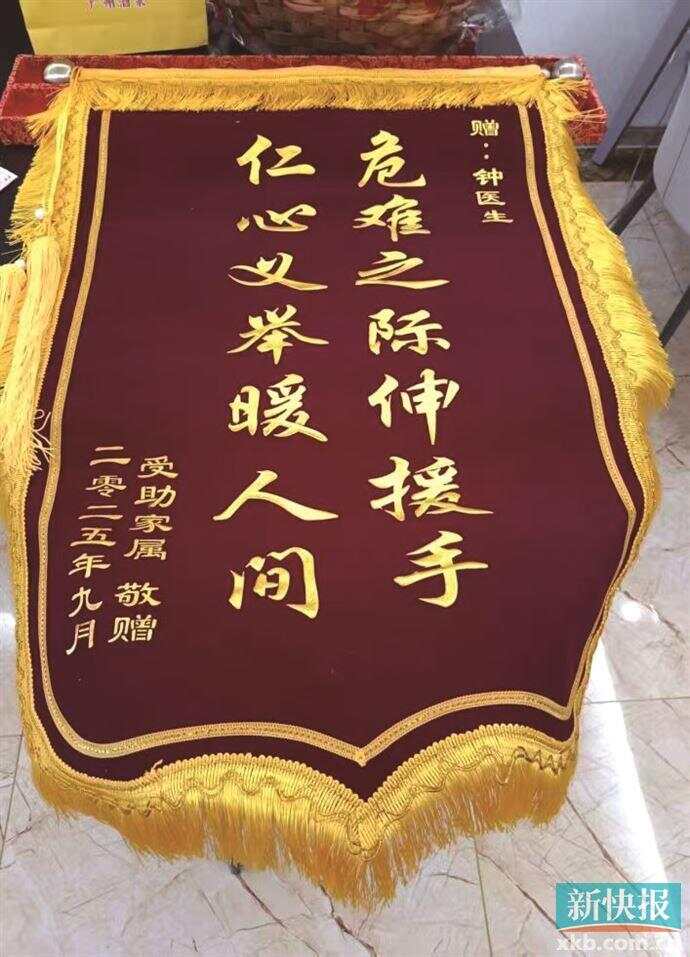 广州酒家
赠：钟医生
危难之际伸援手
仁心义举暖人间
受助家属 敬赠
二零二五年九月
新快报
xkb.com.cn